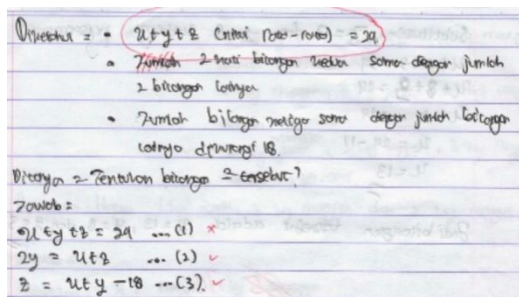 Diketahui = • x + y + z (nilai rata-rata) = 29
• Jumlah 2 kali bilangan kedua sama dengan jumlah
2 bilangan lainya
• Jumlah bilangan ketiga sama dengan jumlah bilangan
lainya dikurangi 18.
Ditanya = Tentukan bilangan 2 tersebut?
Jawab =
x + y + z = 29 ... (1) ×
2y = x + z ... (2) ✓
z = x + y - 18 ... (3). ✓